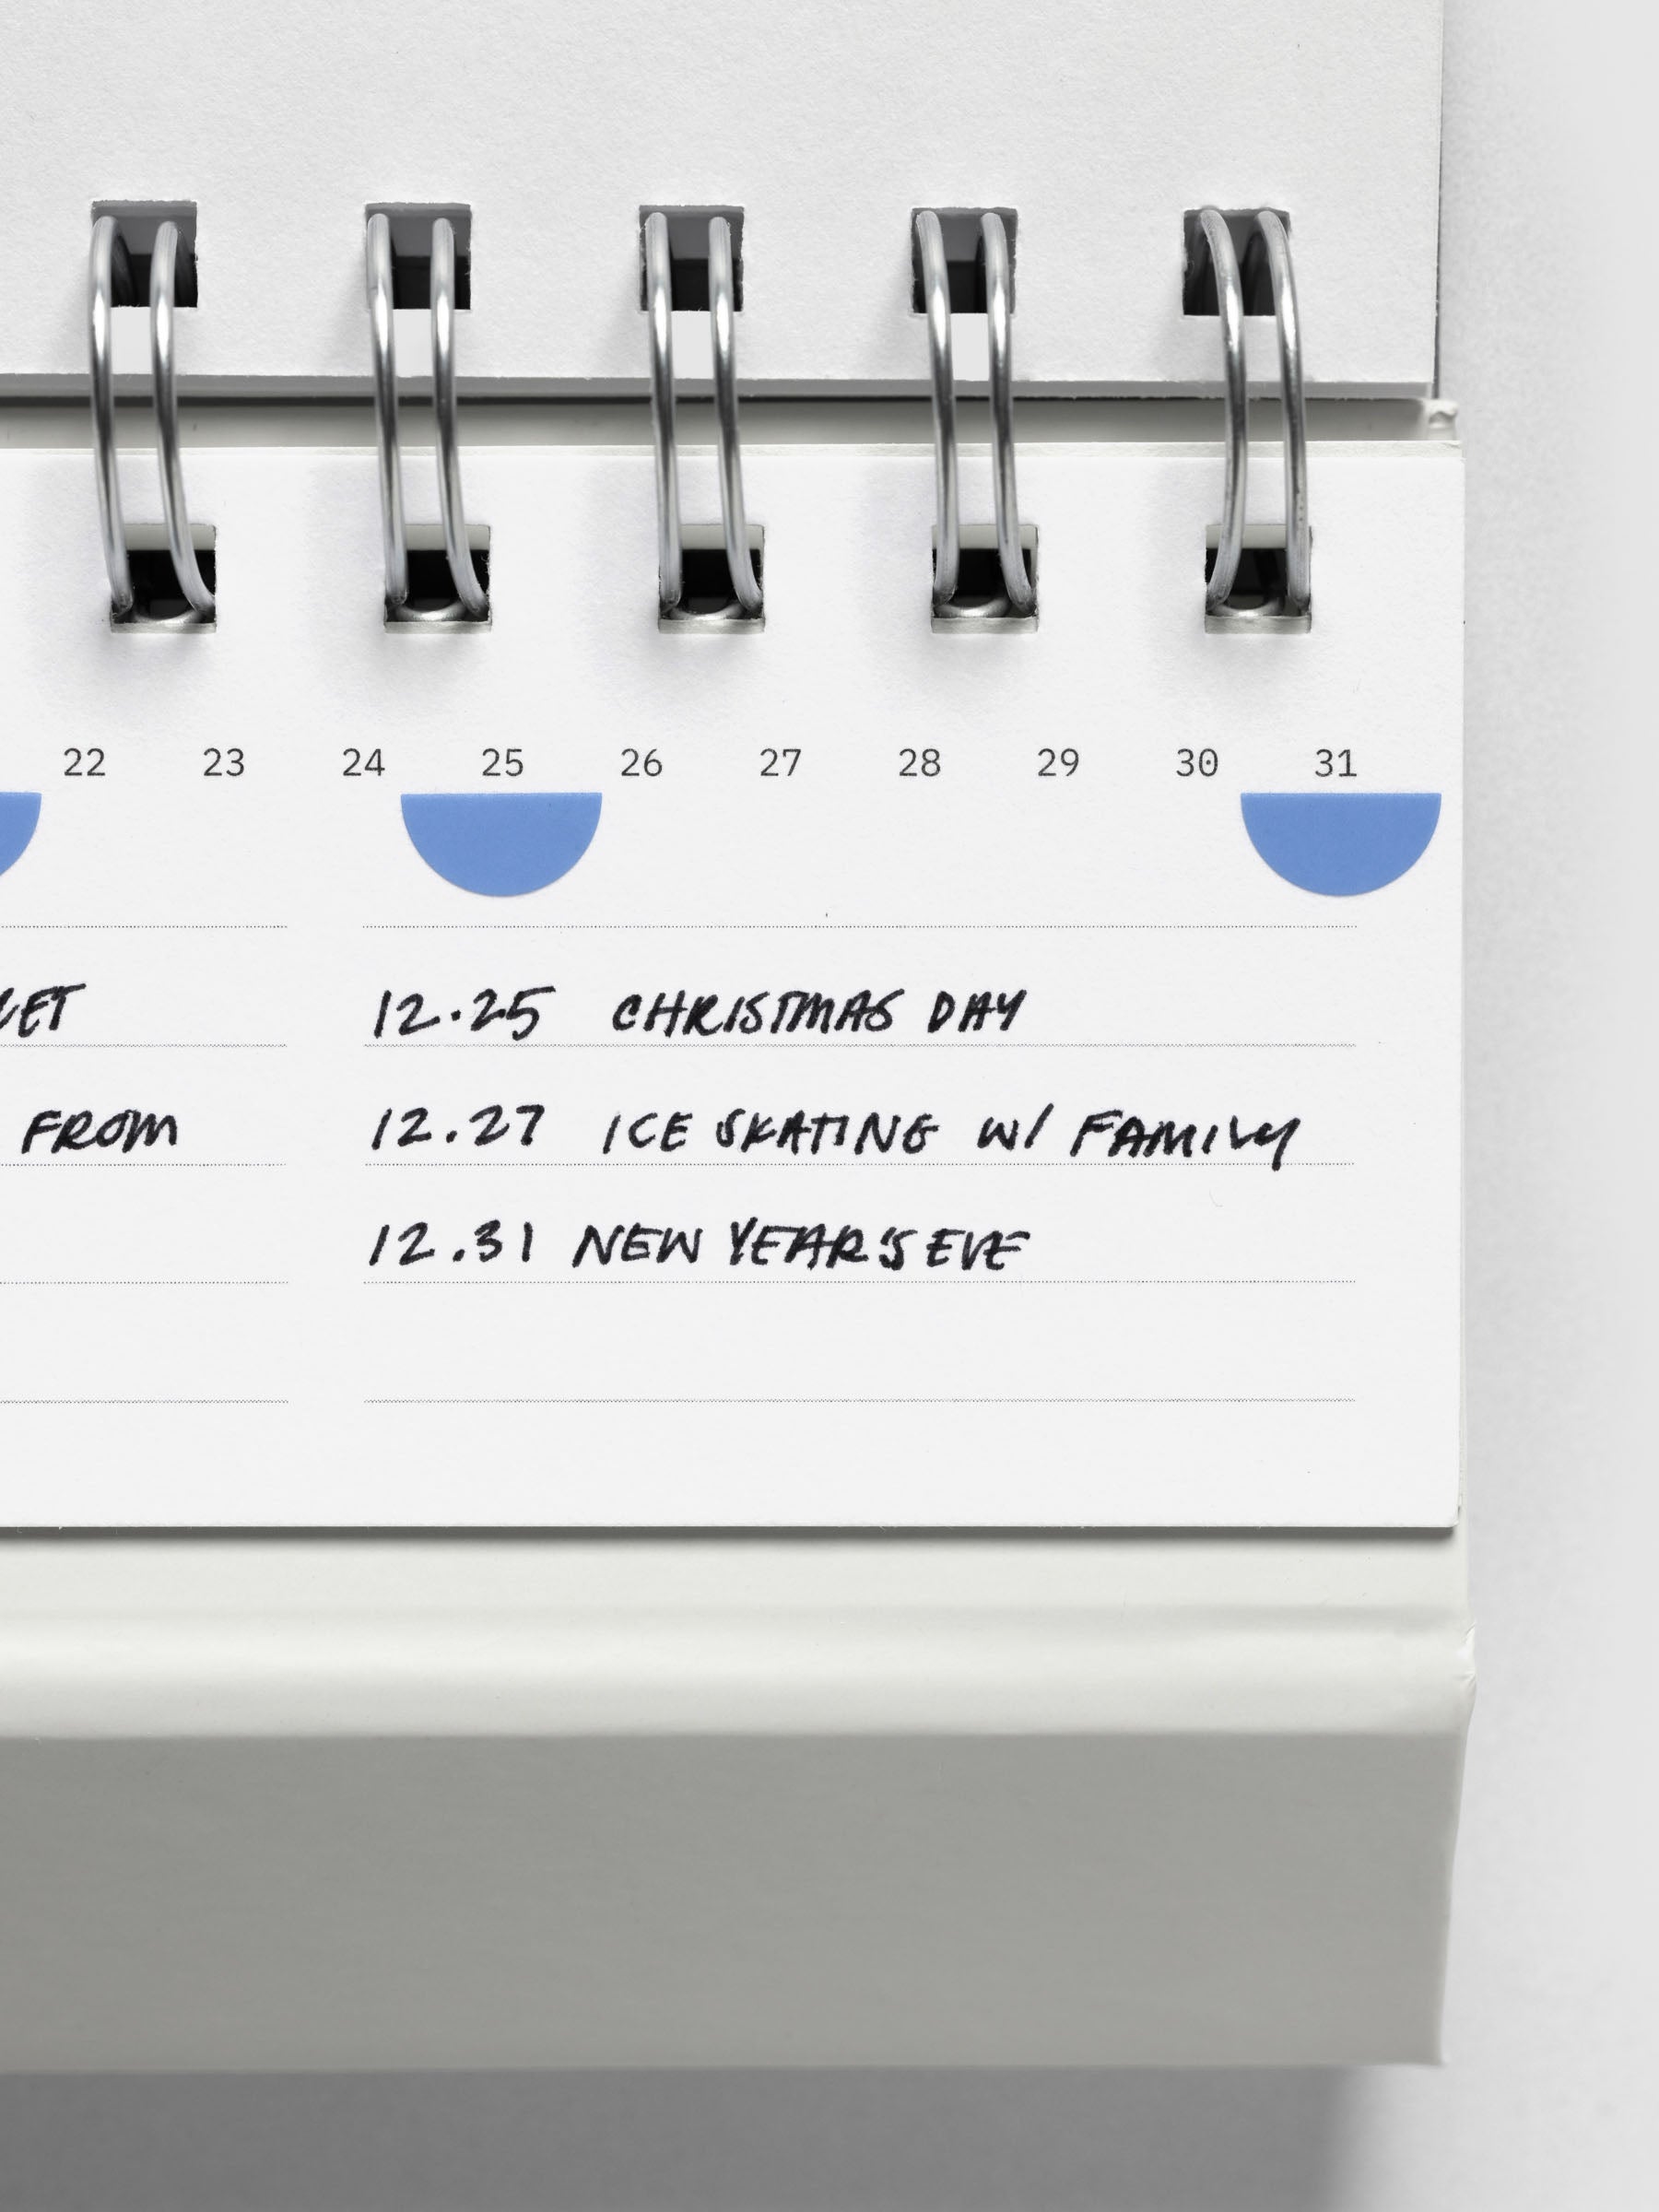 22 23 24 25 26 27 28 29 30 31
12.25 CHRISTMAS DAY
FROM
12.27 ICE SKATING W/ FAMILY
12.31 NEW YEAR'S EVE